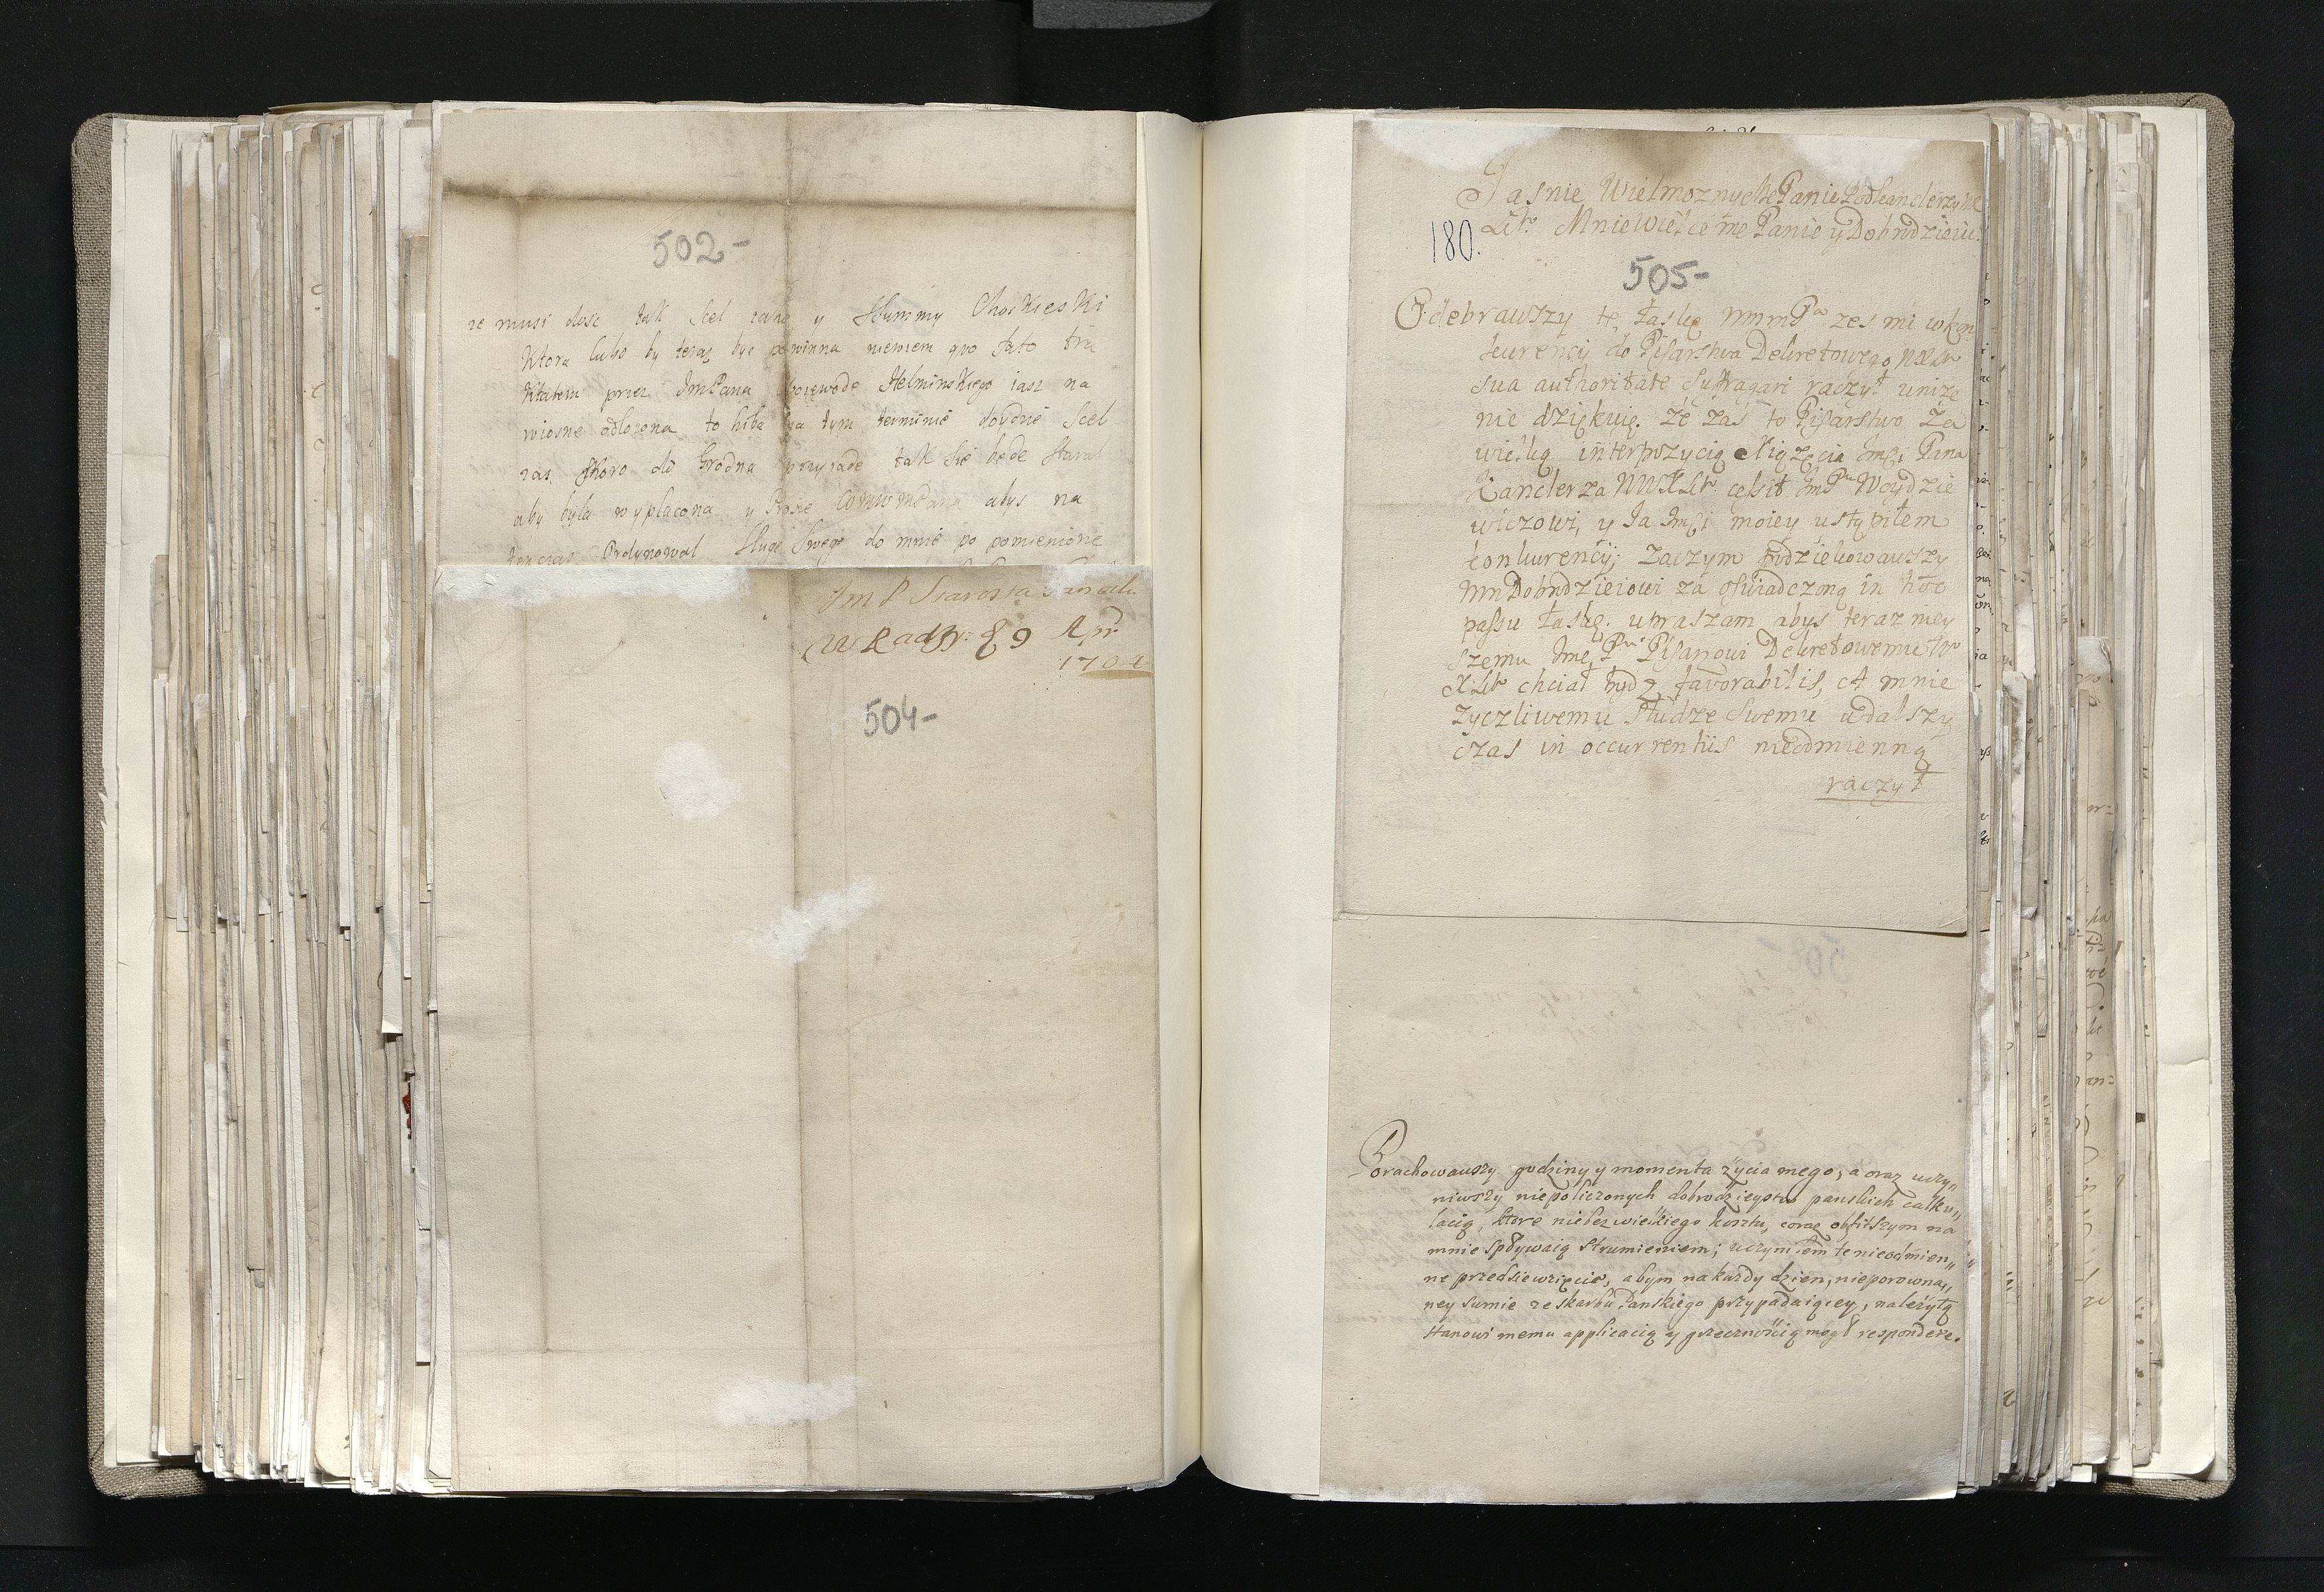 502-
ze musi dosc tak Scel iako y Summy Choskieski
Ktora lubo by teraz byc powinna niewiem quo fato tra
Ktatem przez JmPana Woiewode Helminskiego iasz na
wiosne odlozona to hiba na tym terminie doydzie Scel
zas skoro do Grodna przyjade tak sie bede staral
aby byla wyplacona y Prosze abys na
Ordynowal sluge swego do mnie po pomienione
Jm P Starosta
1704
504-
Jasnie Wielmoznych Me Panie Podkanclerzy W
Lit: Mnie Wielce me Panie y Dobrodzieiu.
180.
505-
Odebrawszy tę łaskę WmmPa zes mi w kon
kurencij do Pisarstwa Dekretowego WXLit
sua authoritate Suffragari raczył uniże
nie dziękuię. Że zas to Pisarstwo Za
wielką interpozycią Xiążęcia Jmsci Pana
Kanclerza WWXLit. cessit JmPu Woydzie
wiczowi, y Ja Jmsci moiey ustąpiłem
konkurencij; Zaczym podziekowawszy
Wm Dobrodzieiowi za oswiadczoną in hoc
passu łaskę. upraszam abys teraz niey
szemu Jmsci Pu Pisarzowi Dekretowemu W
X Lit chciał bydz favorabilis, A mnie
Zyczliwemu słudze Swemu w dalszy
czas in occurrentiis nieodmienną
raczył
Porachowawszy godziny y momenta życia mego, a oraz uczy„
niwszy niepoliczonych dobrodzieystw panskich calku„
lacią, ktore niebez wielkiego kosztu, coraz obfitszym na
mnie spływaią strumieniem; uczyniłem te nieodmien„
ne przedsiewzięcie, abym na kazdy dzien, nieporowna„
ney sumie ze skarbu Panskiego przypadaiącey, należytą
stanowi memu applicacią y grzecznością mogł respondere.